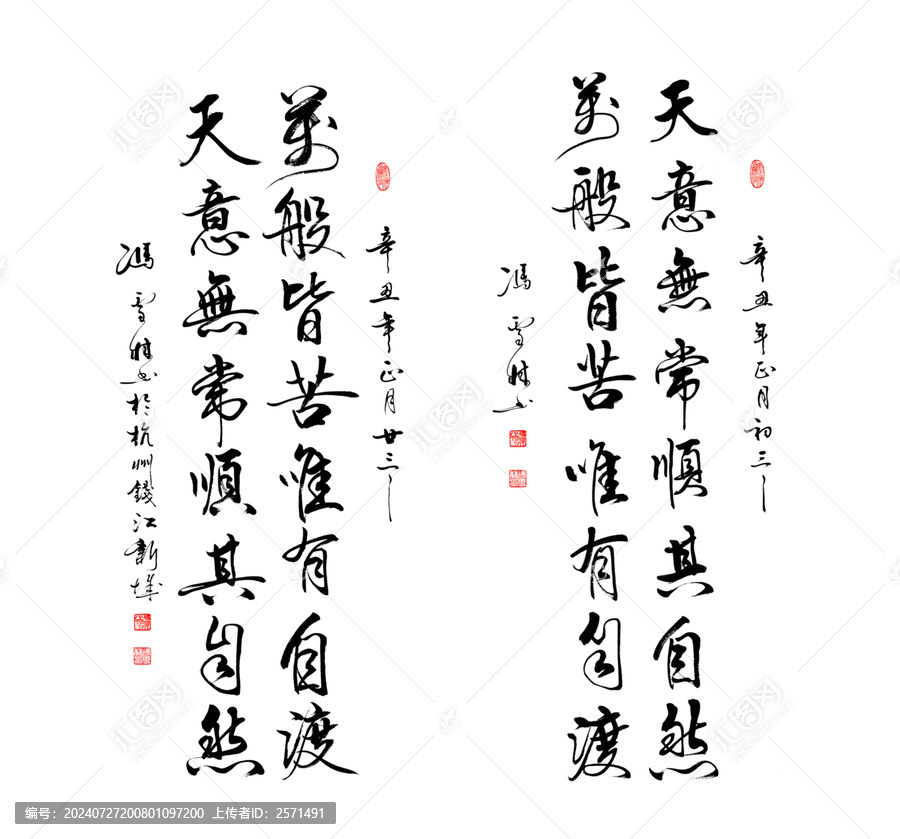 辛丑年正月初三
天意無常順其自然
萬般皆苦唯有自渡
馮雪书
辛丑年正月廿三
萬般皆苦唯有自渡
天意無常順其自然
馮雪书於杭州錢江新城
汇图网
编号：20240727200801097200 上传者ID：2571491